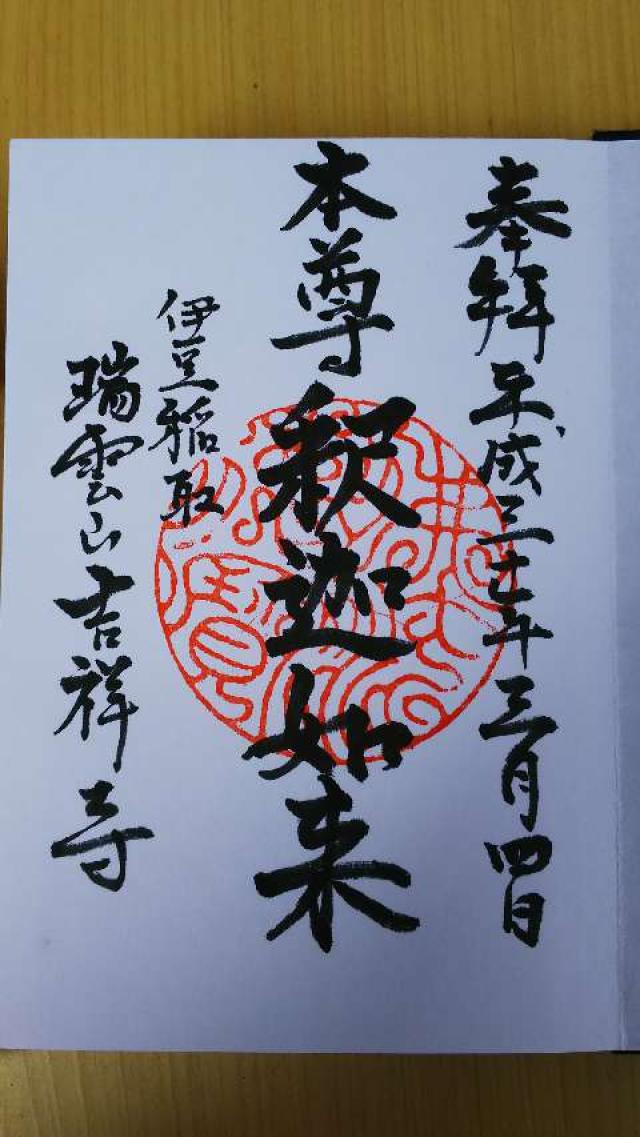 奉拝 平成三十一年三月四日
本尊 釈迦如来
伊豆稲取
瑞雲山吉祥寺